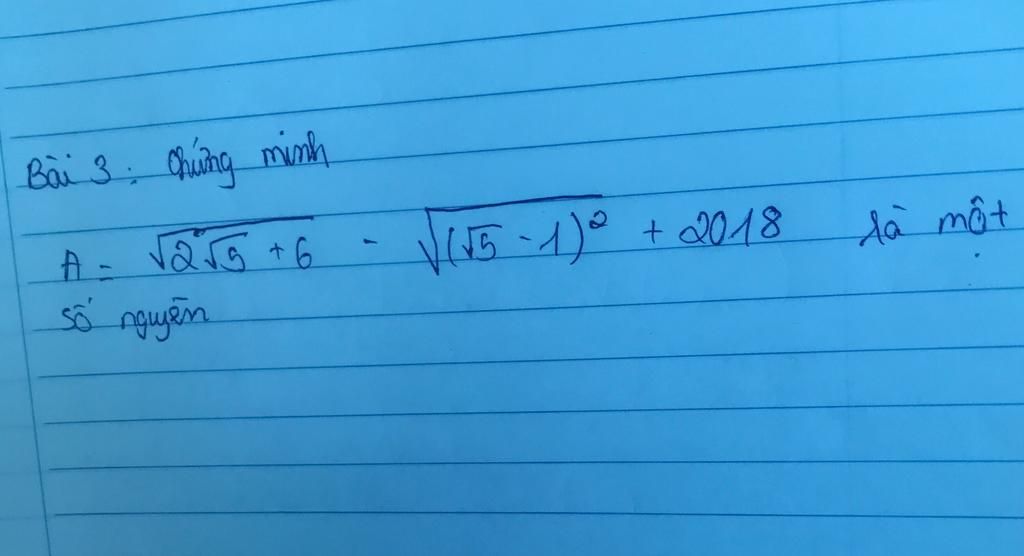 Bài 3: Chứng minh
A = √(2√5 + 6) - √((√5 - 1)²) + 2018 là một
số nguyên